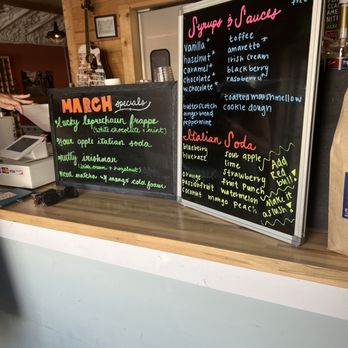 MARCH specials
Lucky Leprechaun frappe
(white chocolate + mint)
Sour apple italian soda
Nutty irishman
(irish cream + hazelnut)
Iced matcha w/ mango cold foam
Syrups & Sauces
vanilla*
hazelnut*
caramel*
chocolate*
white
chocolate
butterscotch
gingerbread
peppermint
toffee
amaretto
irish cream
blackberry
raspberry
toasted marshmellow
cookie dough
Italian Soda
blueberry
orange
passionfruit
coconut
mango
sour apple
lime
strawberry
fruit punch
watermelon
peach
Add
Red
bull!
Make it
a slush!